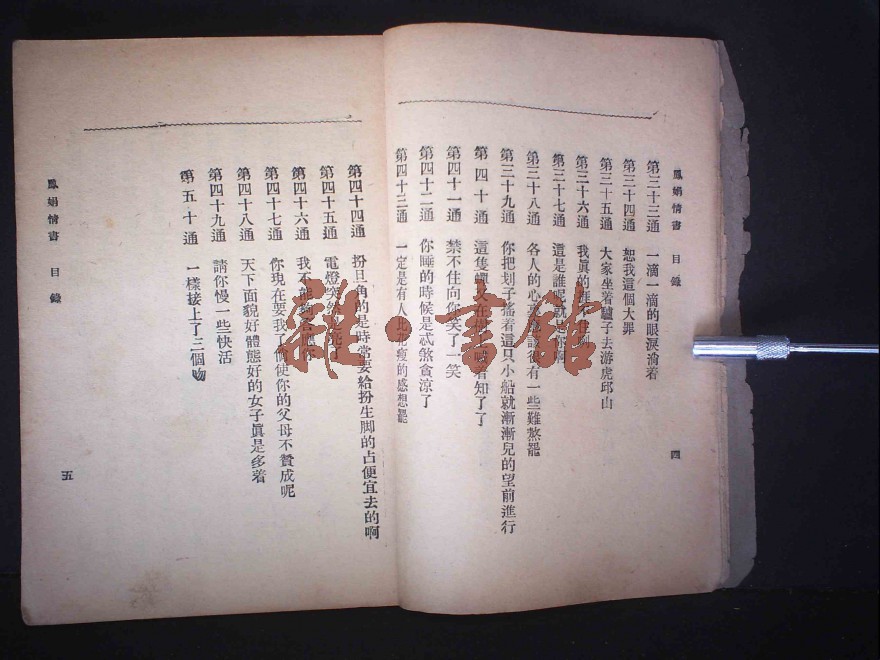 鳳娟情書 目錄
第三十三通 一滴一滴的眼淚淌着
第三十四通 恕我這個大罪
第三十五通 大家坐着驢子去游虎邱山
第三十六通 我真的
第三十七通 這是誰呢就是你啊
第三十八通 各人的心 有一些難熬罷
第三十九通 你把划子搖着這只小船就漸漸兒的望前進行
第四十通 這隻 又在 着知了了
第四十一通 禁不住向你笑了一笑
第四十二通 你睡的時候是忒煞貪涼了
第四十三通 一定是有人比花瘦的感想罷
四
第四十四通 扮旦角的是時常要給扮生脚的占便宜去的啊
第四十五通 電燈突然
第四十六通 我不能夠答應你
第四十七通 你現在要我了倘使你的父母不贊成呢
第四十八通 天下面貌好體態好的女子真是多着
第四十九通 請你慢一些快活
第五十通 一樣接上了三個吻
鳳娟情書 目錄
五
雅·書館